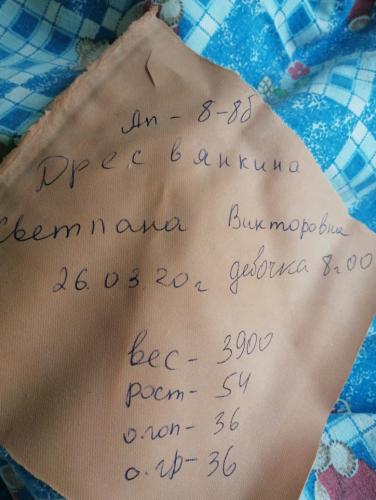 Ап - 8-8б
Дресвянкина
Светлана Викторовна
26.03.20г девочка 8ч00
вес - 3900
рост - 54
о.гол - 36
о.гр - 36